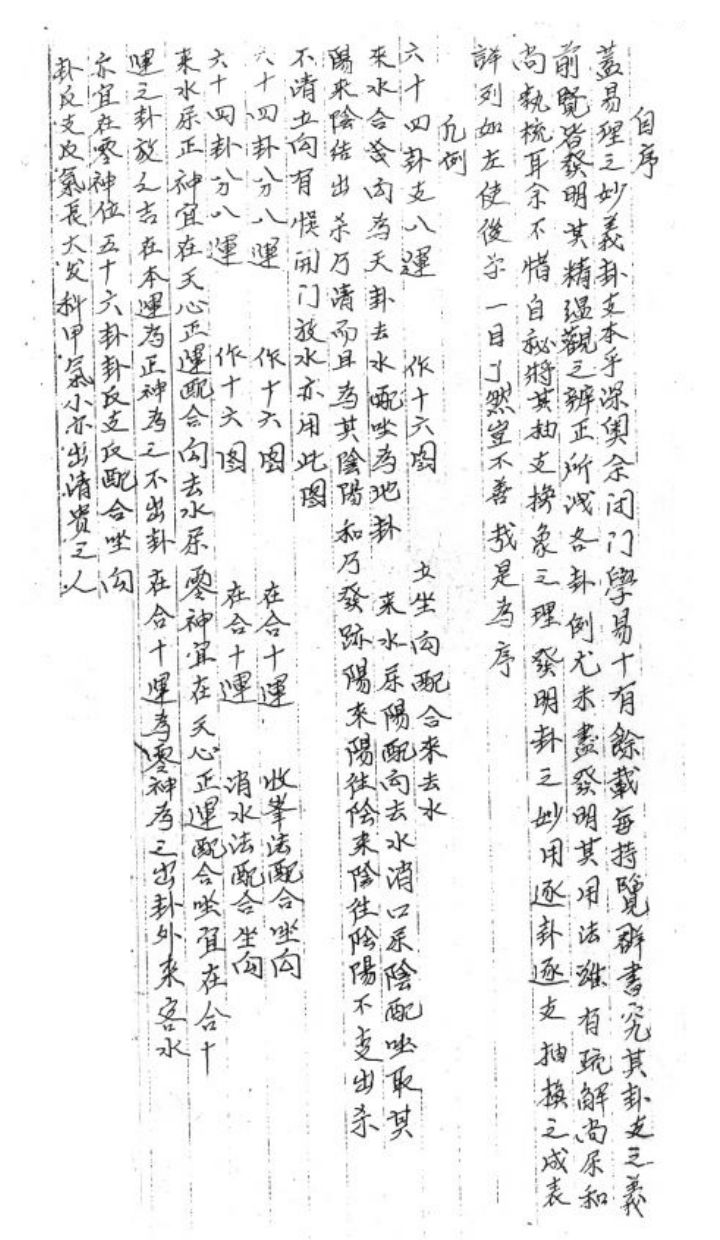 自序
蓋易理之妙義卦支本乎深奧余闭门學易十有餘載每持覽群書究其卦支之義
前覽皆發明其精温觀之辨正所洩各卦例尤未盡發明其用法雖有疏解尚屌和
尚執梳耳余不惜自祕將其抽支换象之理發明卦之妙用逐卦逐支抽换之成表
詳列如左使後学一目了然豈不善哉是為序
凡例
六十四卦支八運 作十六图 立坐向配合來去水
來水合葢向為天卦去水配坐為地卦 來水屌陽配向去水消口屌陰配坐取其
陽來陰结出杀乃清而且為其陰陽和乃發跡陽來陽往陰來陰往陰陽不变出杀
不清立向有悮開门放水亦用此图
六十四卦八分八運 作十六图 在合十運 收峯法配合坐向
六十四卦八分八運 作十六图 在合十運 消水法配合坐向
來水屌正神宜在天心正運配合向去水屌零神宜在天心正運配合坐宜在合十
運之卦放之吉在本運為正神為之不出卦 在合十運為零神為之出卦外來客水
亦宜在零神位五十六卦卦反支反配合坐向
卦反支反氣長大发科甲氣小亦出清贵之人